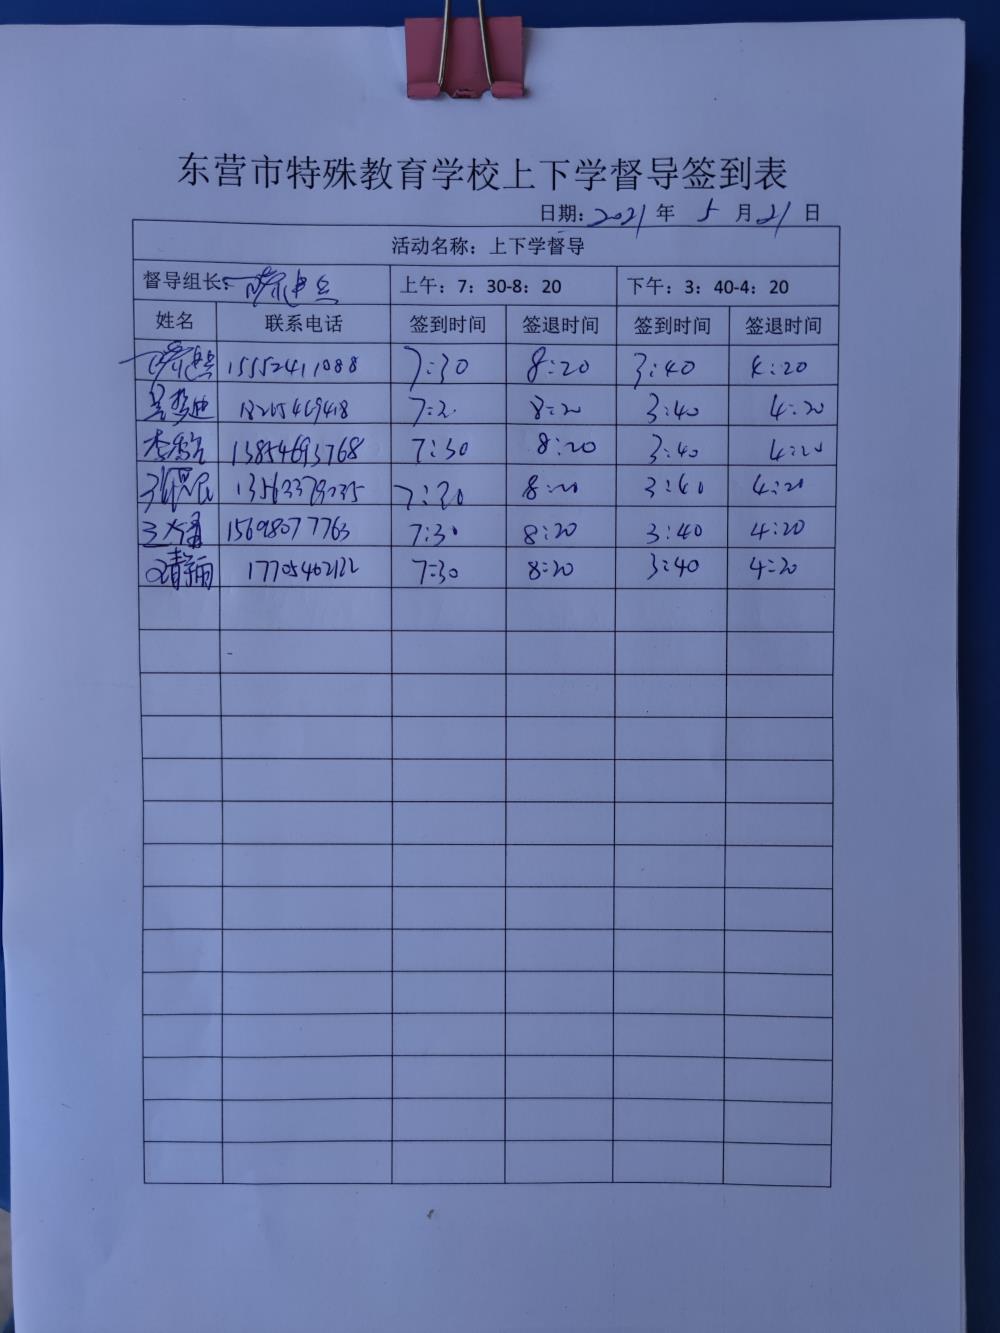 东营市特殊教育学校上下学督导签到表
日期：2021年 5月21日
活动名称：上下学督导
督导组长： 上午：7：30-8：20 下午：3：40-4：20
姓名 联系电话 签到时间 签退时间 签到时间 签退时间
15552411088 7:30 8:20 3:40 4:20
8:20 3:40 4:20
13854693768 7:30 8:20 3:40 4:20
3:40 4:20
15698077763 7:30 8:20 3:40 4:20
7:30 8:20 3:40 4:20